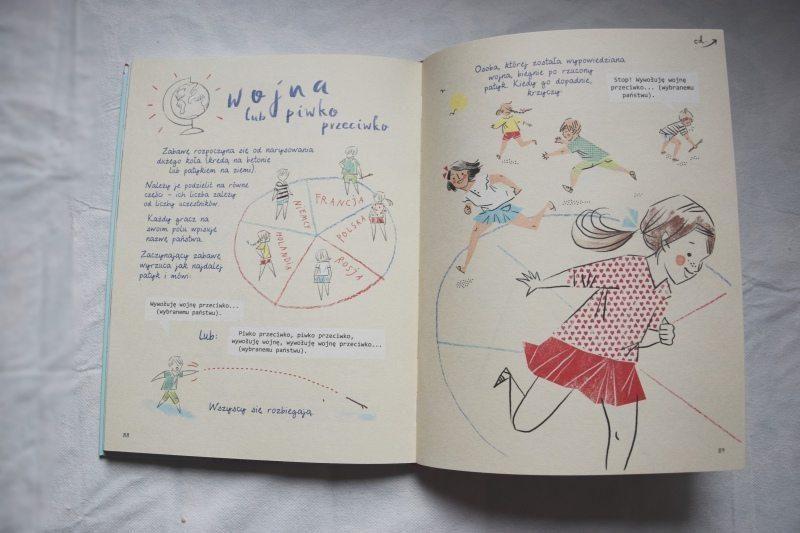 Wojna
lub piwko
przeciwko
Zabawę rozpoczyna się od narysowania
dużego koła (kredą na betonie
lub patykiem na ziemi).
Należy je podzielić na równe
części – ich liczba zależy
od liczby uczestników.
Każdy gracz na
swoim polu wpisuje
nazwę państwa.
Zaczynający zabawę
wyrzuca jak najdalej
patyk i mówi:
NIEMCY
FRANCJA
POLSKA
ROSJA
HOLANDIA
Wywołuję wojnę przeciwko...
(wybranemu państwu).
Lub:
Piwko przeciwko, piwko przeciwko,
wywołuję wojnę, wywołuję wojnę przeciwko...
(wybranemu państwu).
Wszyscy się rozbiegają
88
cd
Osoba, której została wypowiedziana
wojna, biegnie po rzucony
patyk. Kiedy go dopadnie,
krzyczy:
Stop! Wywołuję wojnę
przeciwko... (wybranemu
państwu).
89